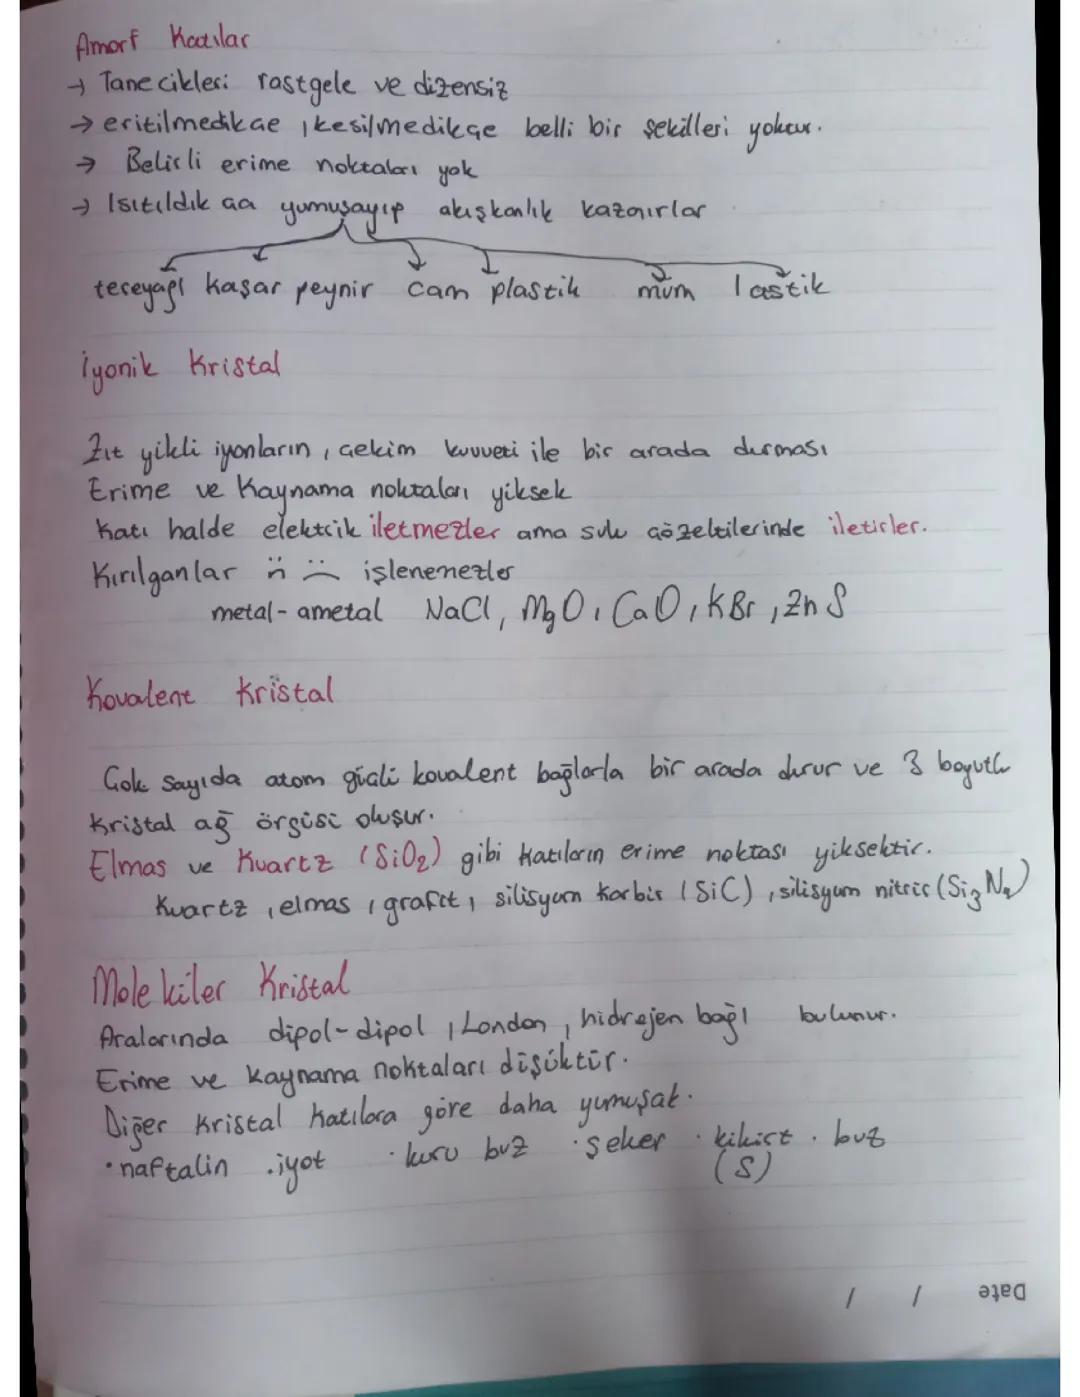 Amorf Katılar
→ Tanecikleri rastgele ve dizensiz
→ eritilmedikçe, kesilmedikçe belli bir şekilleri yoktur.
→ Belirli erime noktaları yok
→ Isıtıldıkça yumuşayıp akışkanlık kazanırlar
tereyağı kaşar peynir cam plastik mum lastik
İyonik Kristal
Zıt yükli iyonların, çekim kuvveti ile bir arada durması
Erime ve Kaynama noktaları yüksek
Katı halde elektrik iletmezler ama sulu çözeltilerinde iletirler.
Kırılganlar n̈ :( işlenemezler
metal-ametal NaCl, MgO, CaO, KBr, ZnS
Kovalent Kristal
Çok sayıda atom güçli kovalent bağlarla bir arada durur ve 3 boyutlu
Kristal ağ örgüsü oluşur.
Elmas ve Kuartz (SiO₂) gibi katıların erime noktası yüksektir.
Kuartz, elmas, grafit, silisyum karbür (SiC), silisyum nitrür (Si₃N₄)
Moleküler Kristal
Aralarında dipol-dipol, London, hidrojen bağı bulunur.
Erime ve kaynama noktaları düşüktür.
Diğer kristal katılara göre daha yumuşak.
•naftalin .iyot •kuru buz •şeker •kükürt . buz
(S)
Date / /